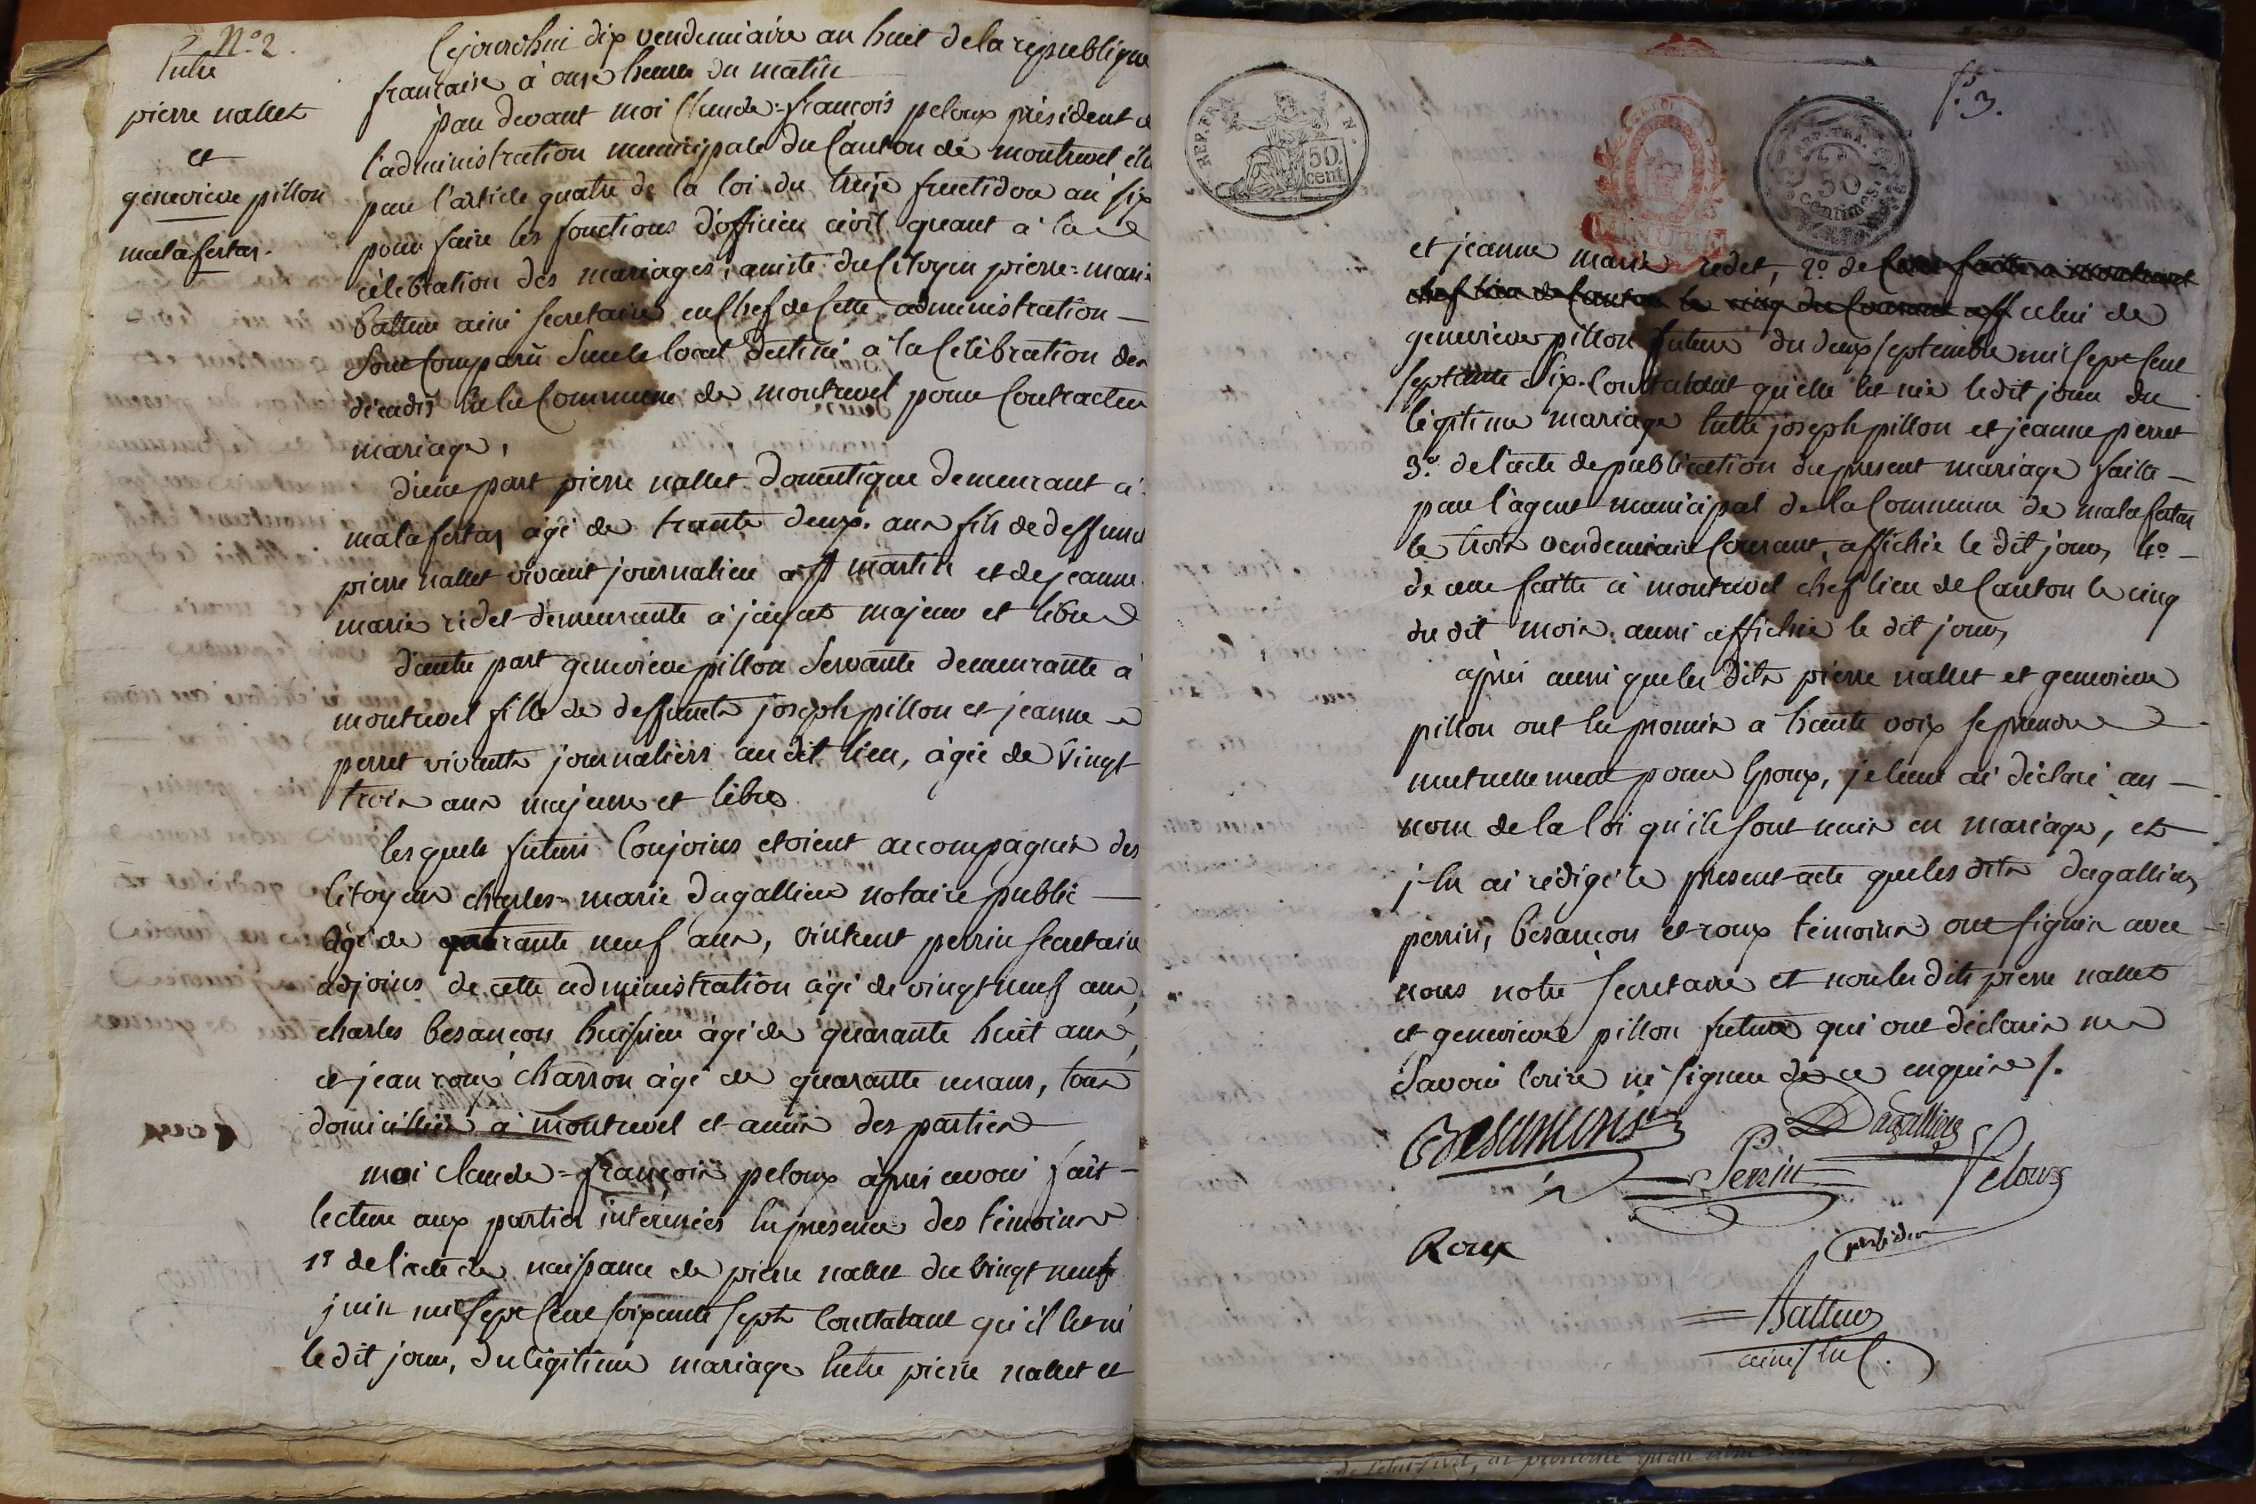 N.º 2.
Entre
pierre nallet
et
genevieve pillon
malafertas.
Cejourd'hui dix vendemiaire an huit de la republique
francaise à onze heures du matin
par devant moi Claude=françois peloux président de
l'administration municipale du Canton de montrevel élu
par l'article quatre de la loi du treize fructidor an six
pour faire les fonctions d'officier civil quant à la
célébration des mariages, assisté du Citoyen pierre=marie
Batteur ainé secretaire en Chef de Cette administration
Sont Comparû Sur le local destiné à la Célébration des
décadis en la Commune de montrevel pour Contracter
mariage,
d'une part pierre nallet domestique demeurant à
malafertas âgé de trante deux ans fils de deffunt
pierre nallet vivant journalier à st martin et de jeanne
marie rédet demeurante à jayat majeur et libre
d'autre part genevieve pillon Servante demeurante à
montrevel fille de deffunts joseph pillon et jeanne
perret vivants journaliers audit lieu, âgée de vingt
trois ans majeure et libre
lesquels futurs Conjoins etoient accompagnés des
Citoyens charles=marie dagallier notaire public
âgé de quarante neuf ans, vintcent perrin secretaire
adjoins de cette administration âgé de vingt neuf ans,
charles besançon huissier âgé de quarante huit ans,
et jean roux charron âgé de quarante un ans, tous
domiciliés à montrevel et amis des parties
moi claude=françois peloux après avoir fait
lecture aux parties interessées en presence des témoins
1º de l'acte de naissance de pierre nallet du vingt neuf
juin mil sept Cent soixante sept Constatant qu'il est né
le dit jour, du légitime mariage Entre pierre nallet et
REP. FRA.
50
cent
MINUTE
REP. FRA.
50
Centimes
fº 3.
et jeanne marie redet, 2º de
celui de
genevieve pillon future du deux septembre mil sept Cent
septante six Constatant qu'elle est née le dit jour du
légitime mariage Entre joseph pillon et jeanne perret
3º de l'acte de publication du present mariage faite
par l'agent municipal de la Commune de malafertas
le trois vendemiaire Courant, affichée le dit jour, 4º
de une faitte à montrevel chef lieu de Canton le cinq
du dit mois, aussi affichée le dit jour,
après aussi que les dits pierre nallet et genevieve
pillon ont eu promis a haute voix se prendre
mutuellement pour Epoux, je leur ai déclaré au
nom de la loi qu'ils sont unis en mariage, et
j'en ai rédigé le present acte que les dits dagallier,
perrin, besançon et roux témoins ont signés avec
nous notre secretaire et non les dits pierre nallet
et genevieve pillon future qui ont déclarés ne
Savoir Ecrire ni signer de ce enquis /.
Besancons
Dagallier
Perrin
Peloux
président
Roux
Batteur
ainé